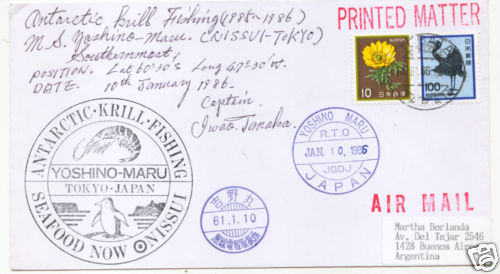 Antarctic Krill Fishing (1985-1986)
M.S. Yoshino-Maru. (NISSUI-TOKYO)
Southernmost,
POSITION. Lat 60°70'S Long 47°30'W.
DATE. 10th January 1986.
Captain
Iwao Tanaka
PRINTED MATTER
10 日本郵便 NIPPON
100 日本郵便 NIPPON
ANTARCTIC·KRILL·FISHING
YOSHINO-MARU
TOKYO·JAPAN
SEAFOOD NOW NISSUI
YOSHINO MARU
R.T.O
JAN. 10. 1986
JGDJ
JAPAN
吉野丸
61.1.10
無線電報電話局
AIR MAIL
Martha Berlanda
Av. Del Tejar 2546
1428 Buenos Aires
Argentina